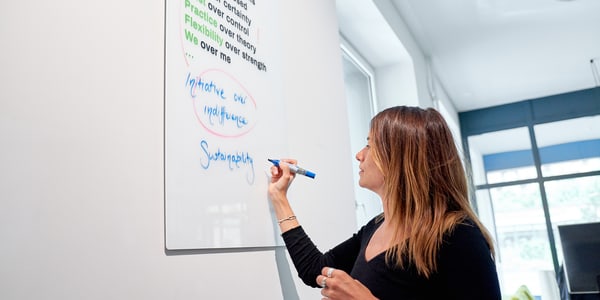 over control
Practice over theory
Flexibility over strength
We over me
...
Initiative over
indifference
Sustainability